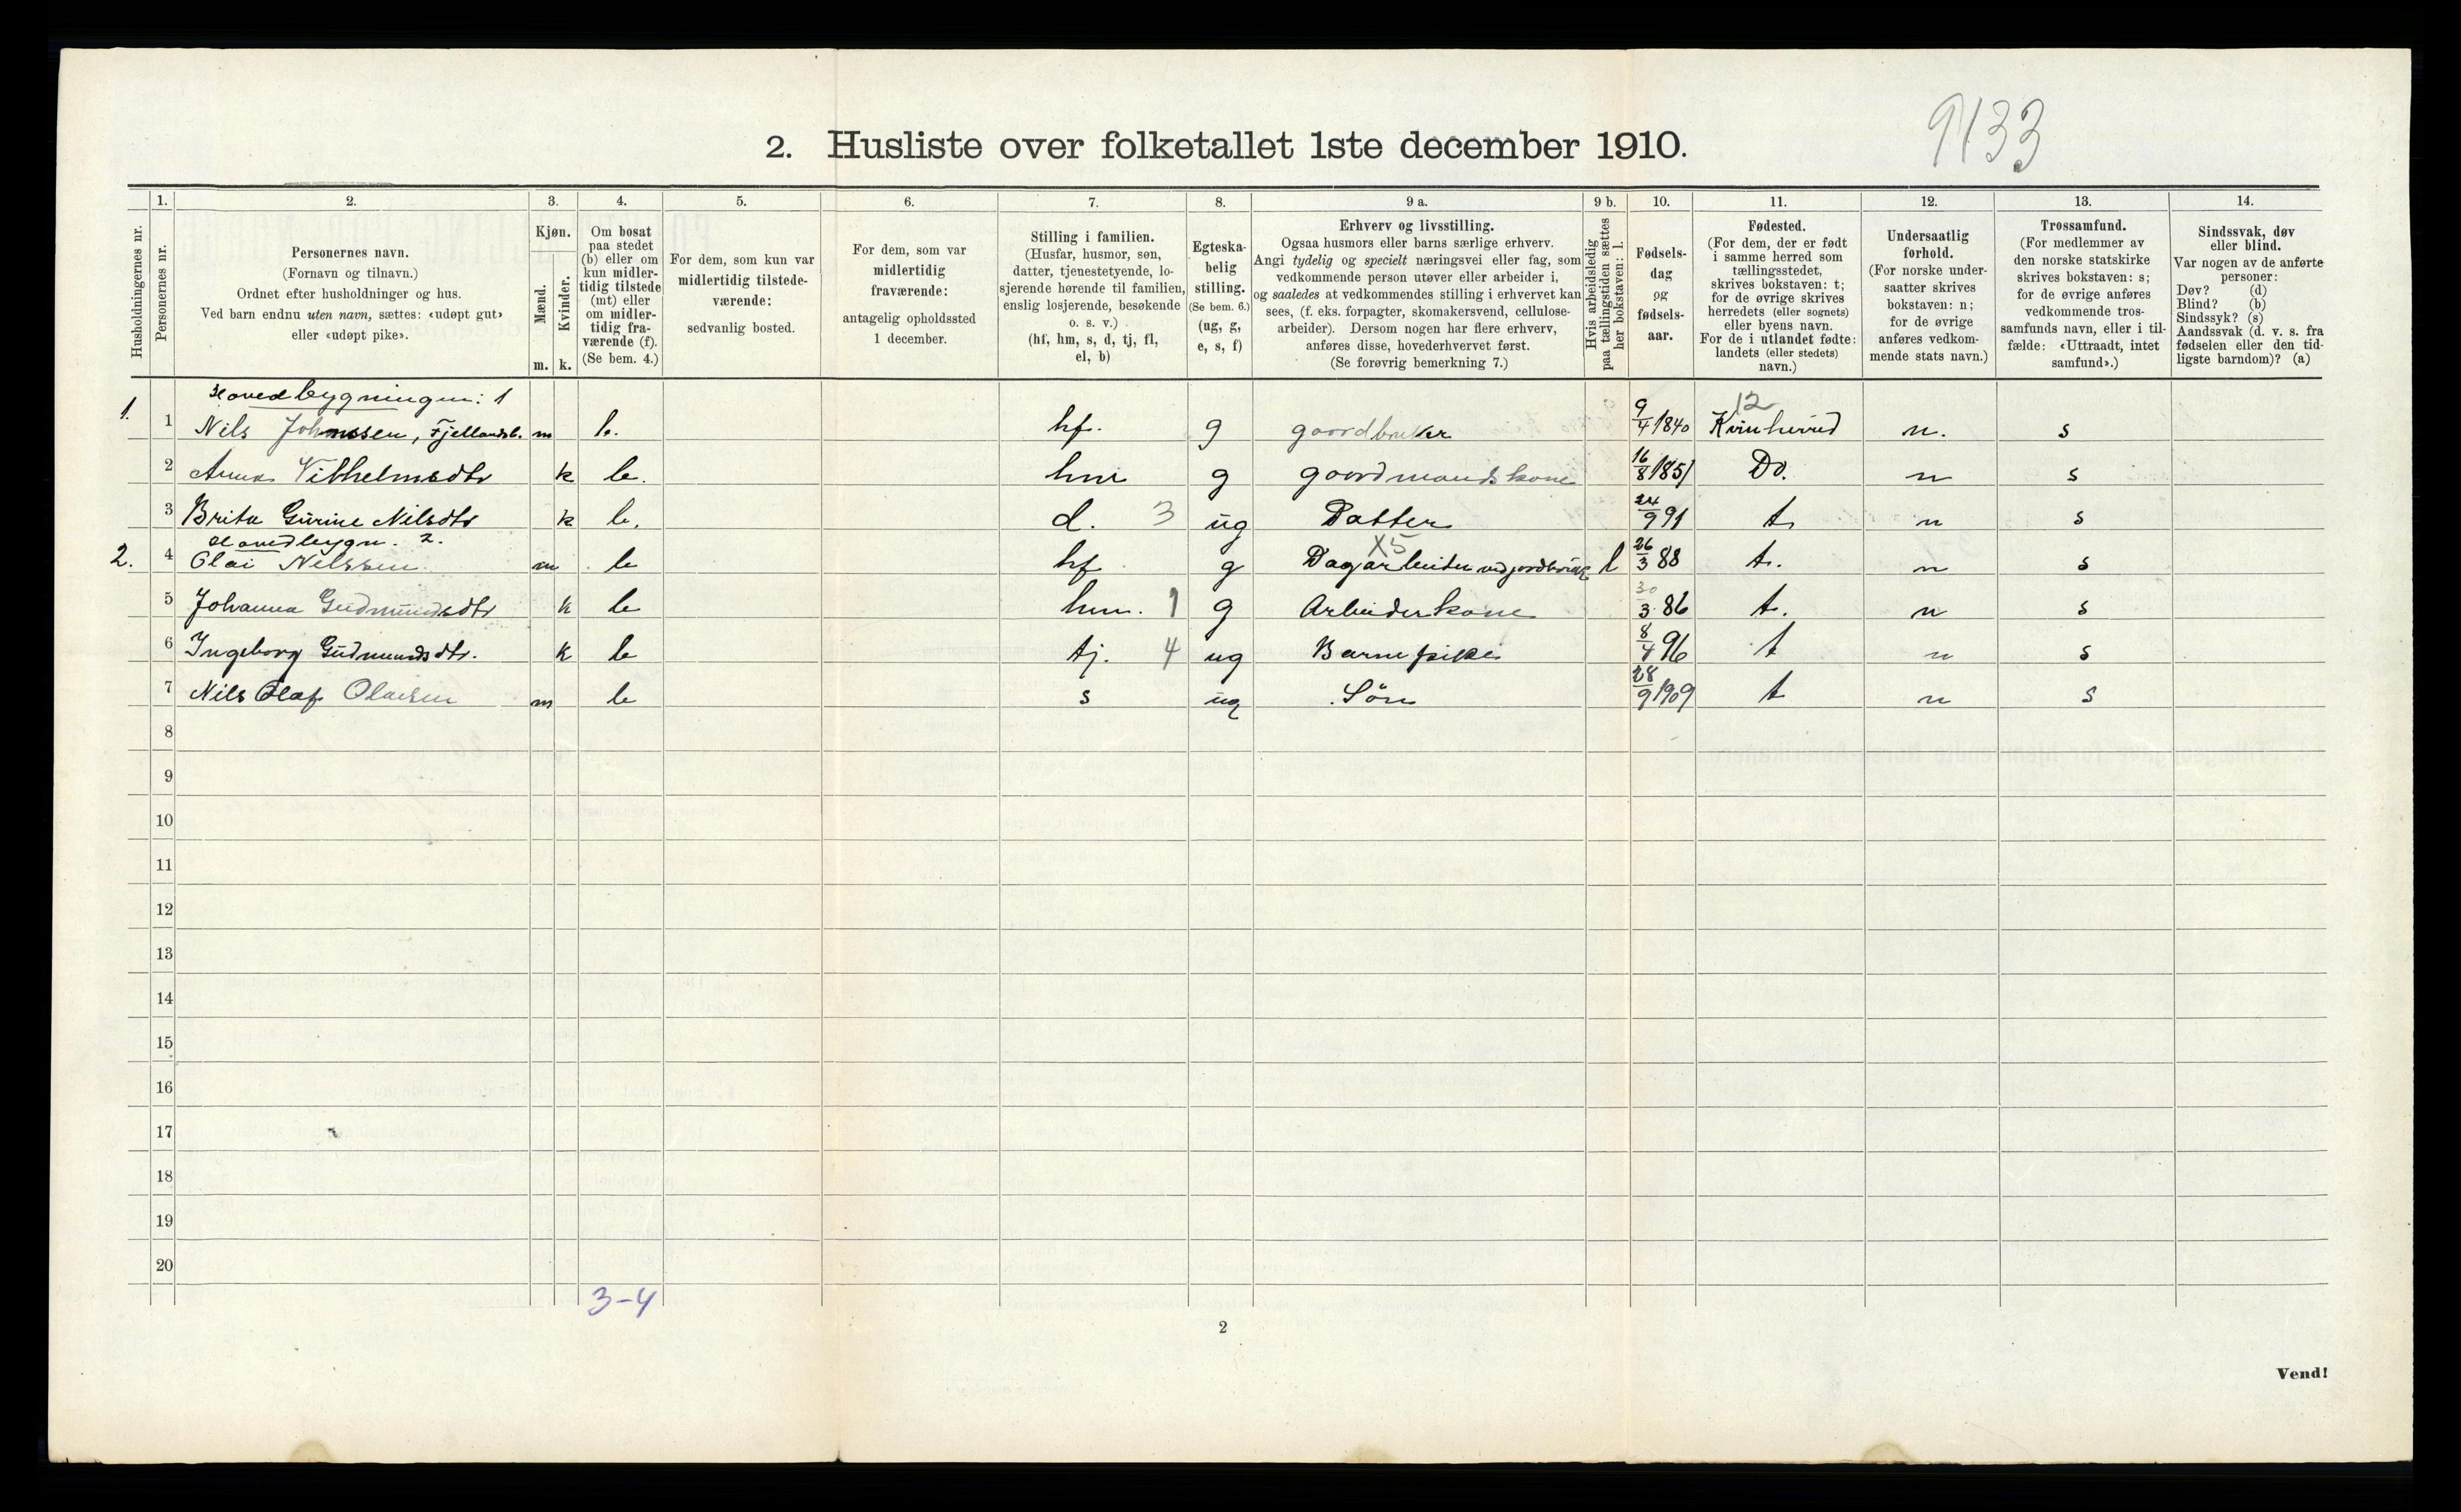 9133
2. Husliste over folketallet 1ste december 1910.
1. 2. 3. 4. 5. 6. 7. 8. 9 a. 9 b. 10. 11. 12. 13. 14.
Husholdningernes nr.
Personernes nr.
Personernes navn.
(Fornavn og tilnavn.)
Ordnet efter husholdninger og hus.
Ved barn endnu uten navn, sættes: «udøpt gut»
eller «udøpt pike».
Kjøn.
Mænd.
Kvinder.
m. k.
Om bosat
paa stedet
(b) eller om
kun midler-
tidig tilstede
(mt) eller
om midler-
tidig fra-
værende (f).
(Se bem. 4.)
For dem, som kun var
midlertidig tilstede-
værende:
sedvanlig bosted.
For dem, som var
midlertidig
fraværende:
antagelig opholdssted
1 december.
Stilling i familien.
(Husfar, husmor, søn,
datter, tjenestetyende, lo-
sjerende hørende til familien,
enslig losjerende, besøkende
o. s. v.)
(hf, hm, s, d, tj, fl,
el, b)
Egteska-
belig
stilling.
(Se bem. 6.)
(ug, g,
e, s, f)
Erhverv og livsstilling.
Ogsaa husmors eller barns særlige erhverv.
Angi tydelig og specielt næringsvei eller fag, som
vedkommende person utøver eller arbeider i,
og saaledes at vedkommendes stilling i erhvervet kan
sees, (f. eks. forpagter, skomakersvend, cellulose-
arbeider). Dersom nogen har flere erhverv,
anføres disse, hovederhvervet først.
(Se forøvrig bemerkning 7.)
Hvis arbeidsledig
paa tællingstiden sættes
her bokstaven: l.
Fødsels-
dag
og
fødsels-
aar.
Fødested.
(For dem, der er født
i samme herred som
tællingsstedet,
skrives bokstaven: t;
for de øvrige skrives
herredets (eller sognets)
eller byens navn.
For de i utlandet fødte:
landets (eller stedets)
navn.)
Undersaatlig
forhold.
(For norske under-
saatter skrives
bokstaven: n;
for de øvrige
anføres vedkom-
mende stats navn.)
Trossamfund.
(For medlemmer av
den norske statskirke
skrives bokstaven: s;
for de øvrige anføres
vedkommende tros-
samfunds navn, eller i til-
fælde: «Uttraadt, intet
samfund».)
Sindssvak, døv
eller blind.
Var nogen av de anførte
personer:
Døv? (d)
Blind? (b)
Sindssyk? (s)
Aandssvak (d. v. s. fra
fødselen eller den tid-
ligste barndom)? (a)
Hovedbygningen: 1
12
1. 1 Nils Johnssen, Fjellandsb. m b. hf. g gaardbruker 9/4 1840 Kvinherred n. s
2 Anna Vilhelmsdtr k b. hm g gaardmandskone 16/8 1851 Do. n s
3 Brita Gurine Nilsdtr k b. d. 3 ug Datter 24/9 91 t. n s
Hovedbygn. 2.
X5
2. 4 Olai Nilssen m b hf g Dagarbeider ved jordbruk l 26/3 88 t. n s
5 Johanna Gudmundsdtr k b hm. 1 g Arbeiderkone 30/3 86 t. n s
6 Ingeborg Gudmundsdtr. k b tj. 4 ug Barnepike 8/4 96 t n s
7 Nils Olaf Olaisen m b s ug Søn 28/9 1909 t n s
8
9
10
11
12
13
14
15
16
17
18
19
20
3-4
2
Vend!